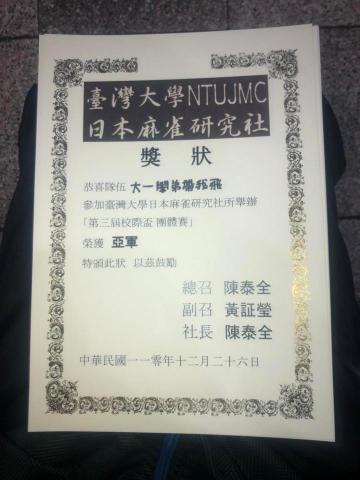 臺灣大學NTUJMC
日本麻雀研究社
獎 狀
恭喜隊伍 大一學弟帶我飛
參加臺灣大學日本麻雀研究社所舉辦
「第三屆校際盃 團體賽」
榮獲 亞軍
特頒此狀 以茲鼓勵
總召 陳泰全
副召 黃証瑩
社長 陳泰全
中華民國一一零年十二月二十六日